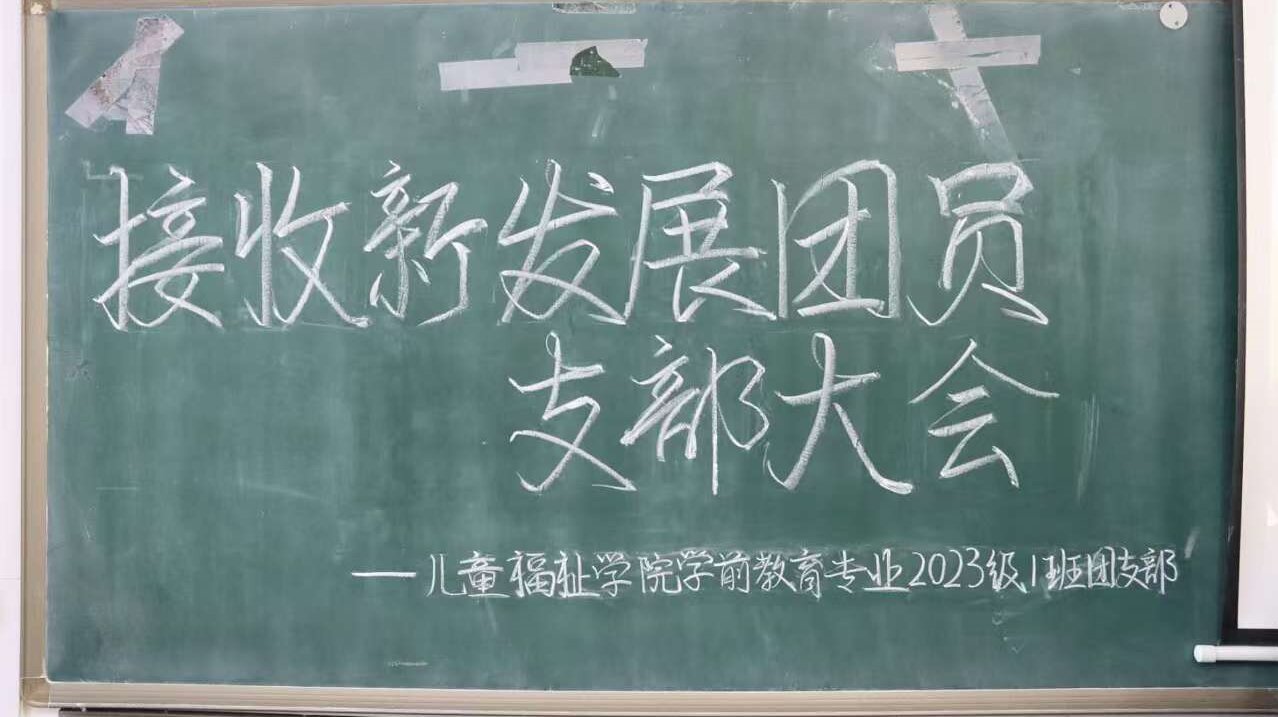 接收新发展团员
支部大会
——儿童福祉学院学前教育专业2023级1班团支部